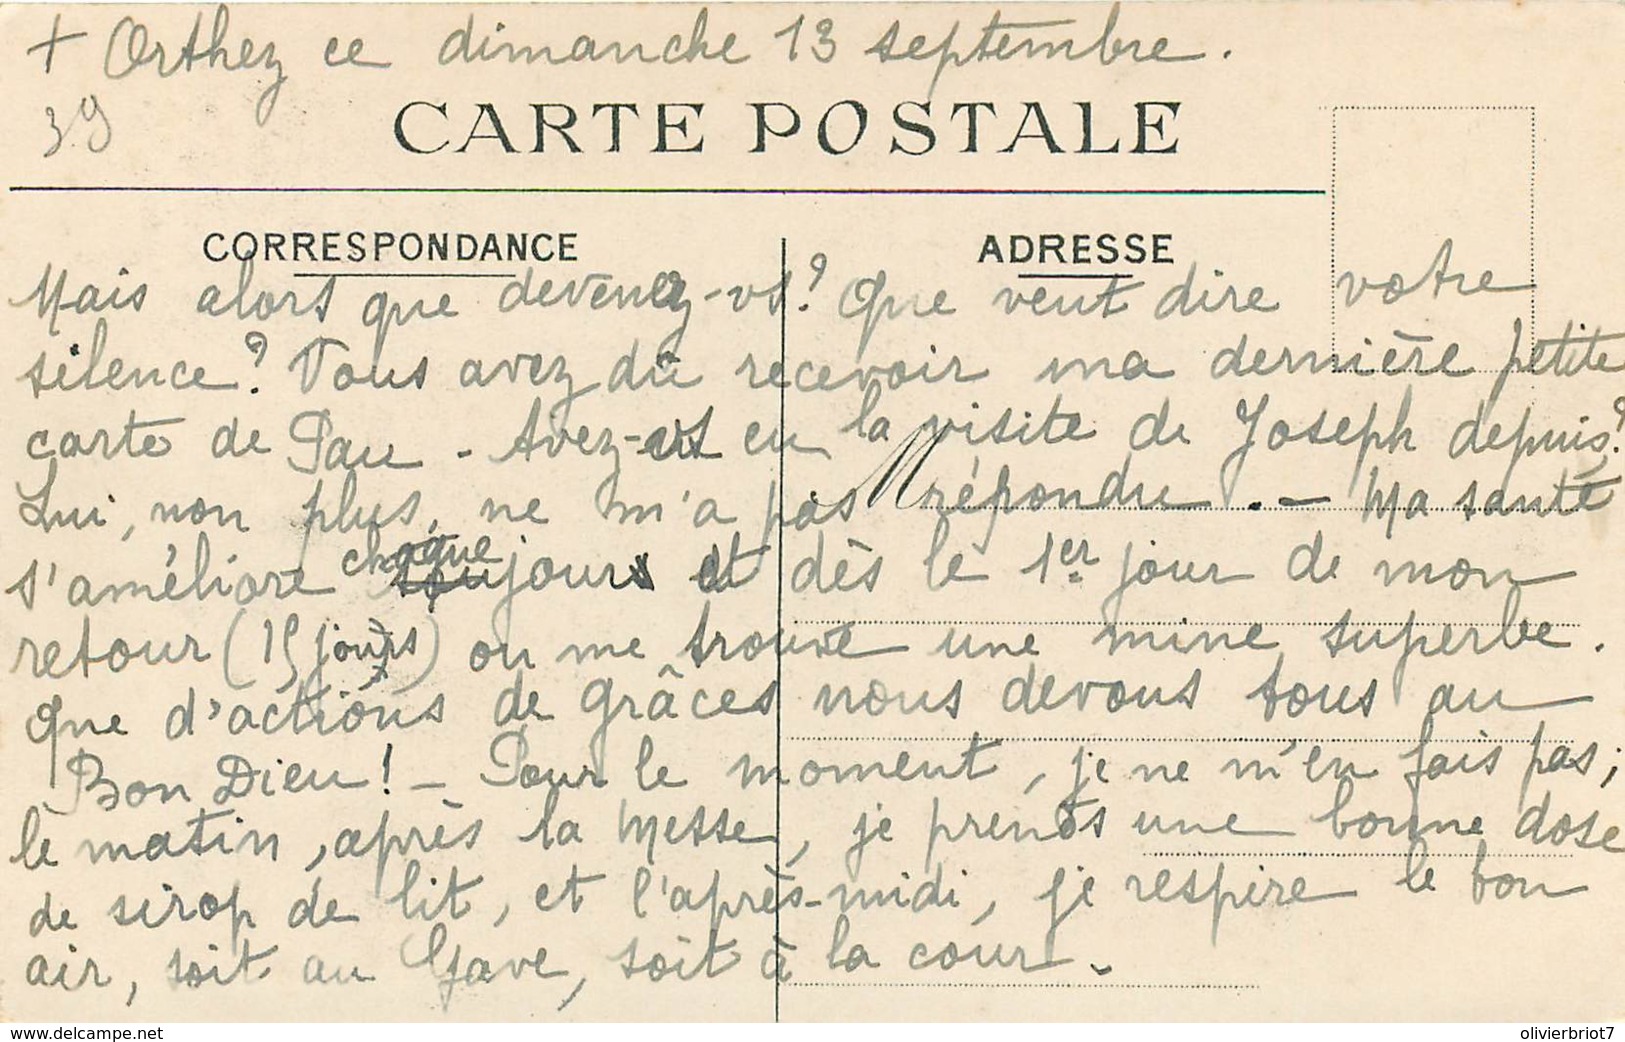 + Orthez ce dimanche 13 septembre.
39
CARTE POSTALE
CORRESPONDANCE
ADRESSE
Mais alors que devenez-vs? Que veut dire votre
silence? Vous avez dû recevoir ma dernière petite
carte de Pau - Avez-vs eu la visite de Joseph depuis?
Lui, non plus, ne m'a pas répondu. - Ma santé
s'améliore chaque jour et dès le 1er jour de mon
retour (15 jours) on me trouve une mine superbe.
Que d'actions de grâces nous devons tous au
Bon Dieu! - Pour le moment, je ne m'en fais pas;
le matin, après la Messe, je prends une bonne dose
de sirop de lit, et l'après-midi, je respire le bon
air, soit au Gave, soit à la cour.
www.delcampe.net
olivierbriot7